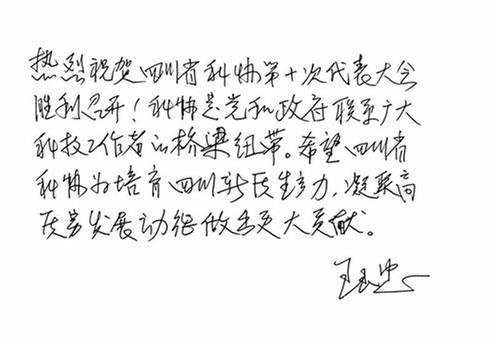 热烈祝贺四川省科协第十次代表大会
胜利召开！科协是党和政府联系广大
科技工作者的桥梁纽带。希望四川省
科协为培育四川新质生产力，凝聚高
质量发展动能做出更大贡献。
王玉忠